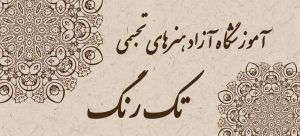 آموزشگاه آزاد هنرهای تجسمی
تک رنگ